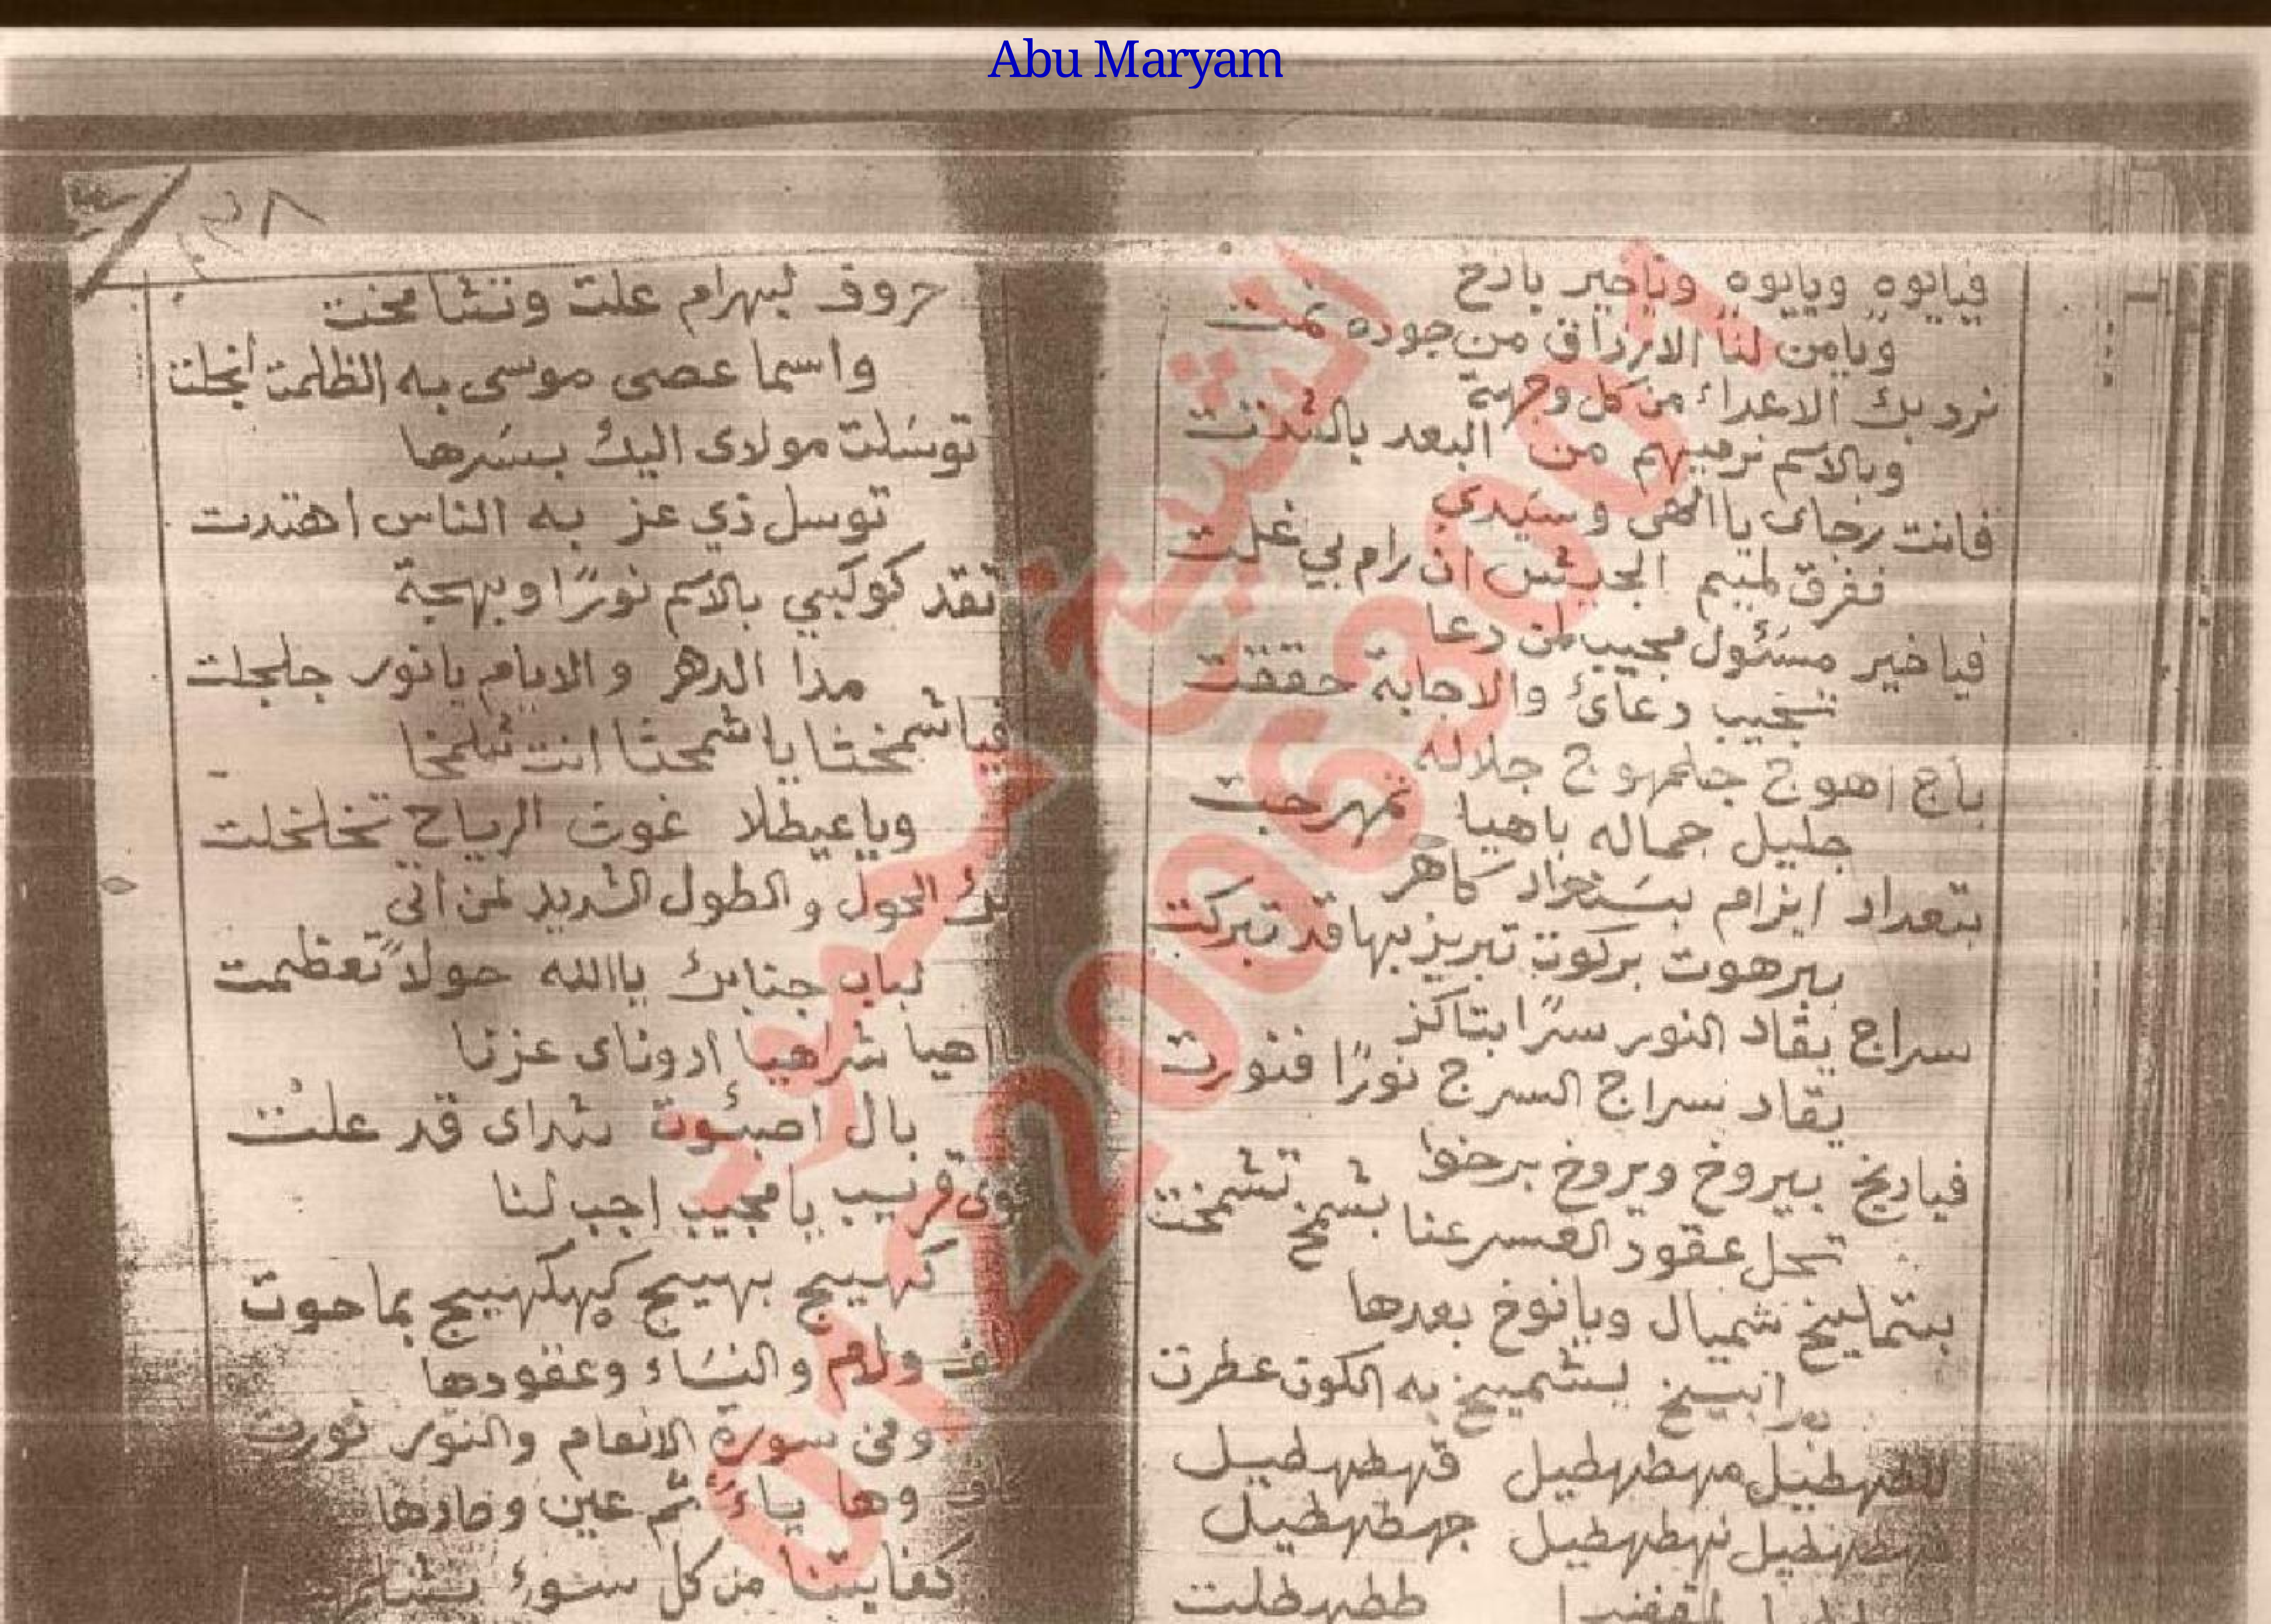 Abu Maryam
فيايوه ويايوه وياخير بازخ
ويامن لنا الارزاق من جوده نمت
نرد بك الاعداء من كل وجهة
وبالاسم نرميهم من البعد بالشتت
فانت رجاى ياالهى وسيدي
ففرق لميم الجيش ان رام بي غلت
فياخير مسئول مجيب لمن دعا
تجيب دعائ والاجابة حققت
باج اهوج جلمهوج جلاله
جليل جماله باهيا تمهرجت
بتعداد ابرام بسنداد كاهر
ببرهوت بركوت تبريز بها قد تبركت
سراج يقاد النور سرًا بتاكز
يقاد سراج السرج نورًا فنورت
بيروخ وبروخ برخوا
تحل عقود العسر عنا بشمخ تشمخت
بتمليخ شميال ويانوخ بعدها
يشميخ به الكون عطرت
للطهطيل مهطهطيل قهطهطيل
فهطهطيل نهطهطيل جهطهطيل
٢٨
حروف لبهرام علت وتشامخت
واسما عصى موسى به الظلمت انجلت
توسلت مولاى اليك بسرها
توسل ذي عز به الناس اهتدت
تقد كوكبي بالاسم نورًا وبهجة
مدا الدهر والايام يانور جلجلت
فياشمخثا ياشمخثا انت شلمخا
وياعيطلا غوث الرياح تخلخلت
بك الحول والطول الشديد لمن اتى
لباب جنابك ياالله حولاً تعظمت
اهيا شراهيا ادوناى عزنا
بال اصبئوت شداى قد علت
قريب يامجيب اجب لنا
كهيج بهيج كهكهيج بما حوت
ولام والنساء وعقودها
وفى سورة الانعام والنور نورت
كاف وها ياء ثم عين وصادها
كفايتنا من كل سوء